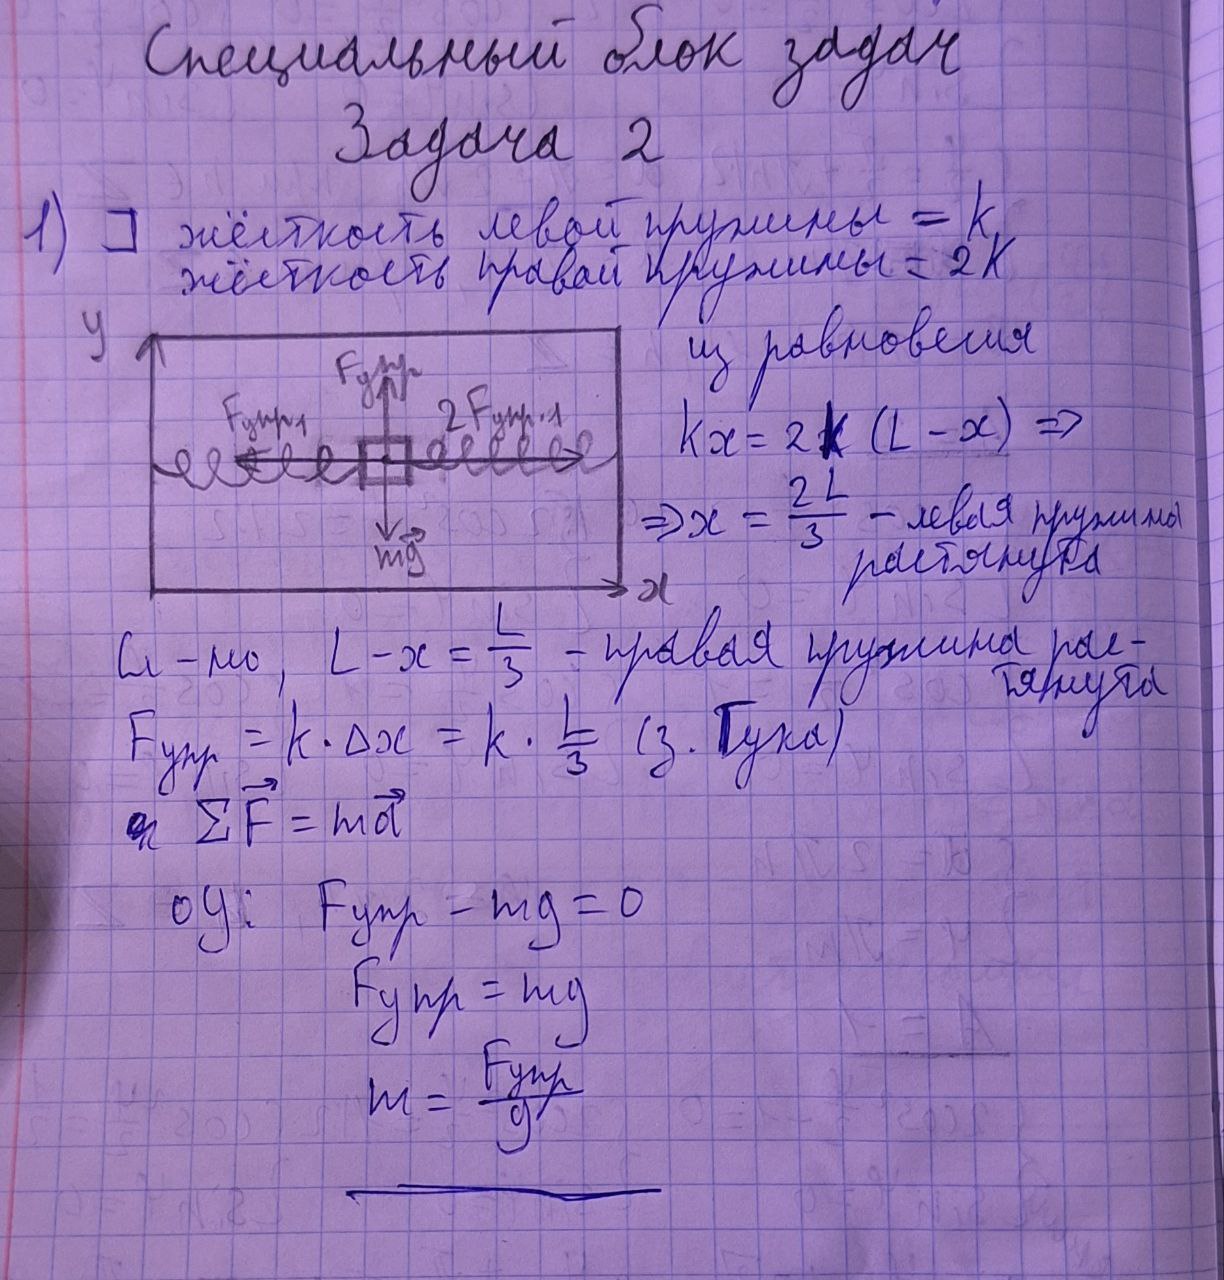 Специальный блок задач
Задача 2
1) ] жёсткость левой пружины = k,
жёсткость правой пружины = 2k
y
из равновесия
Fупр
Fупр1
2Fупр.1
kx = 2k (L - x) =>
=> x = 2L/3 - левая пружина
растянута
mg
x
Сл-но, L - x = L/3 - правая пружина рас-
тянута
Fупр = k · Δx = k · L/3 (з. Гука)
ΣF = ma
oy: Fупр - mg = 0
Fупр = mg
m = Fупр/g